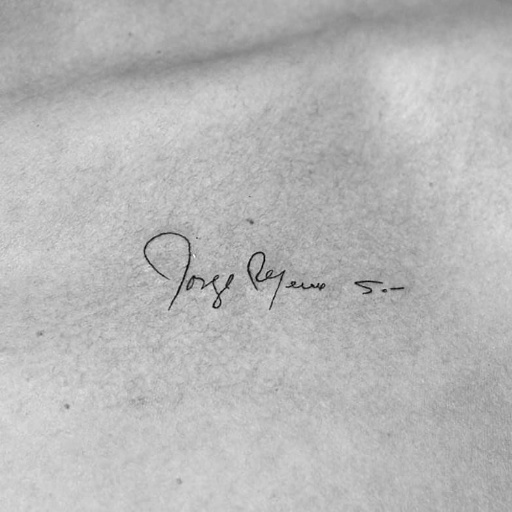 Jorge Reyes S.-